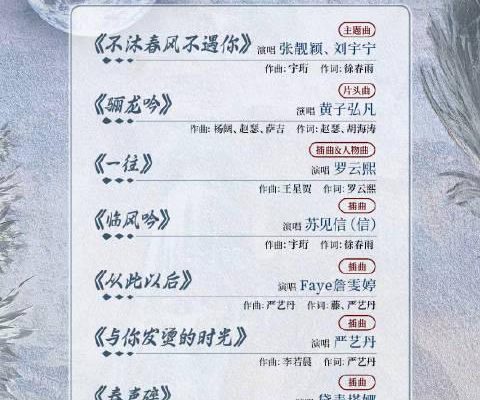 主题曲
《不沐春风不遇你》 演唱 张靓颖、刘宇宁
作曲: 宇珩 作词: 徐春雨
片头曲
《骊龙吟》 演唱 黄子弘凡
作曲: 杨阙、赵瑟、萨吉 作词: 赵瑟、胡海涛
插曲&人物曲
《一往》 演唱 罗云熙
作曲: 王星贺 作词: 罗云熙
插曲
《临风吟》 演唱 苏见信(信)
作曲: 宇珩 作词: 徐春雨
插曲
《从此以后》 演唱 Faye詹雯婷
作曲: 严艺丹 作词: 藤、严艺丹
插曲
《与你发烫的时光》 演唱 严艺丹
作曲: 李若晨 作词: 严艺丹
插曲
《春声碎》 演唱 黛青塔娜